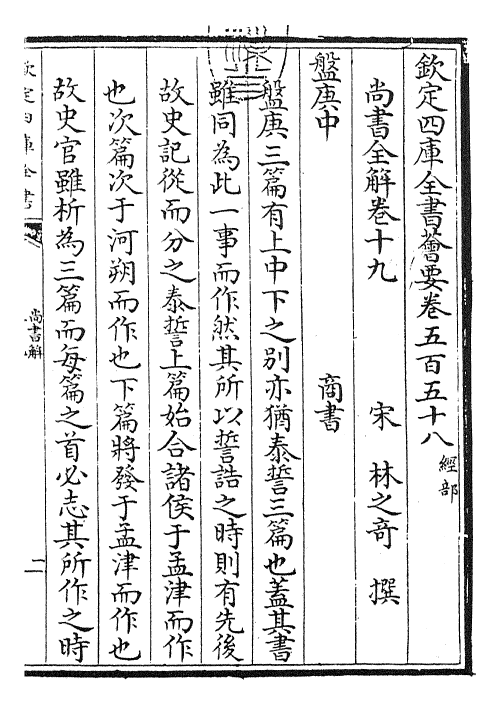 欽定四庫全書薈要卷五百五十八 經部
尚書全解卷十九 宋 林之奇 撰
盤庚中 商書
盤庚三篇有上中下之别亦猶泰誓三篇也葢其書
雖同為此一事而作然其所以誓誥之時則有先後
故史記從而分之泰誓上篇始合諸侯于孟津而作
也次篇次于河朔而作也下篇將發于孟津而作也
故史官雖析為三篇而每篇之首必志其所作之時
欽定四庫全書
尚書解
二